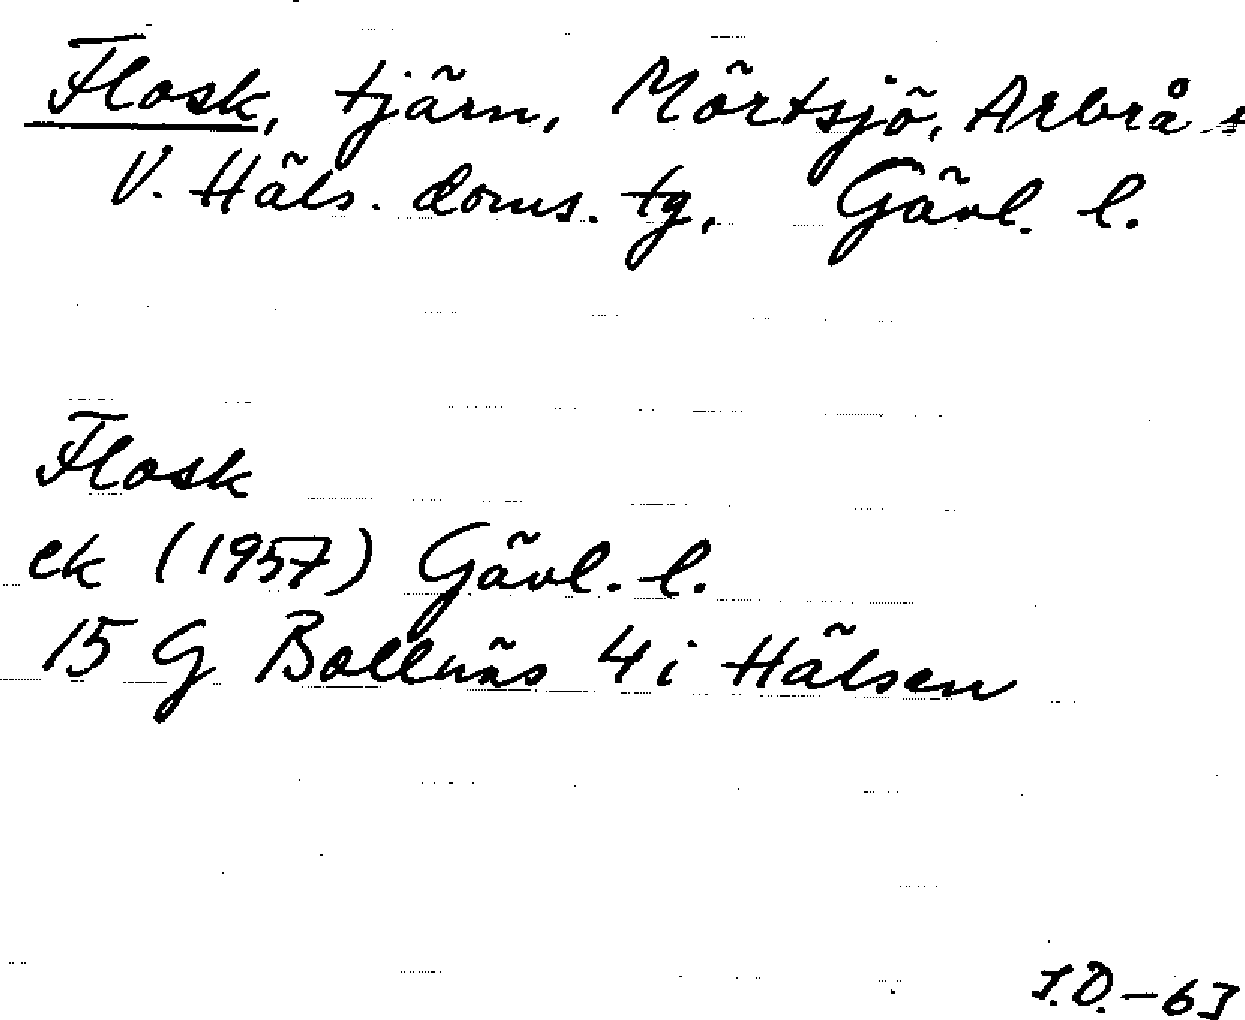 Flosk, tjärn, Mörtsjö, Arbrå s
V. Häls. doms. tg, Gävl. l.
Flosk
ek (1957) Gävl. l.
15 G Bollnäs 4 i Hälsen
I.D. -63